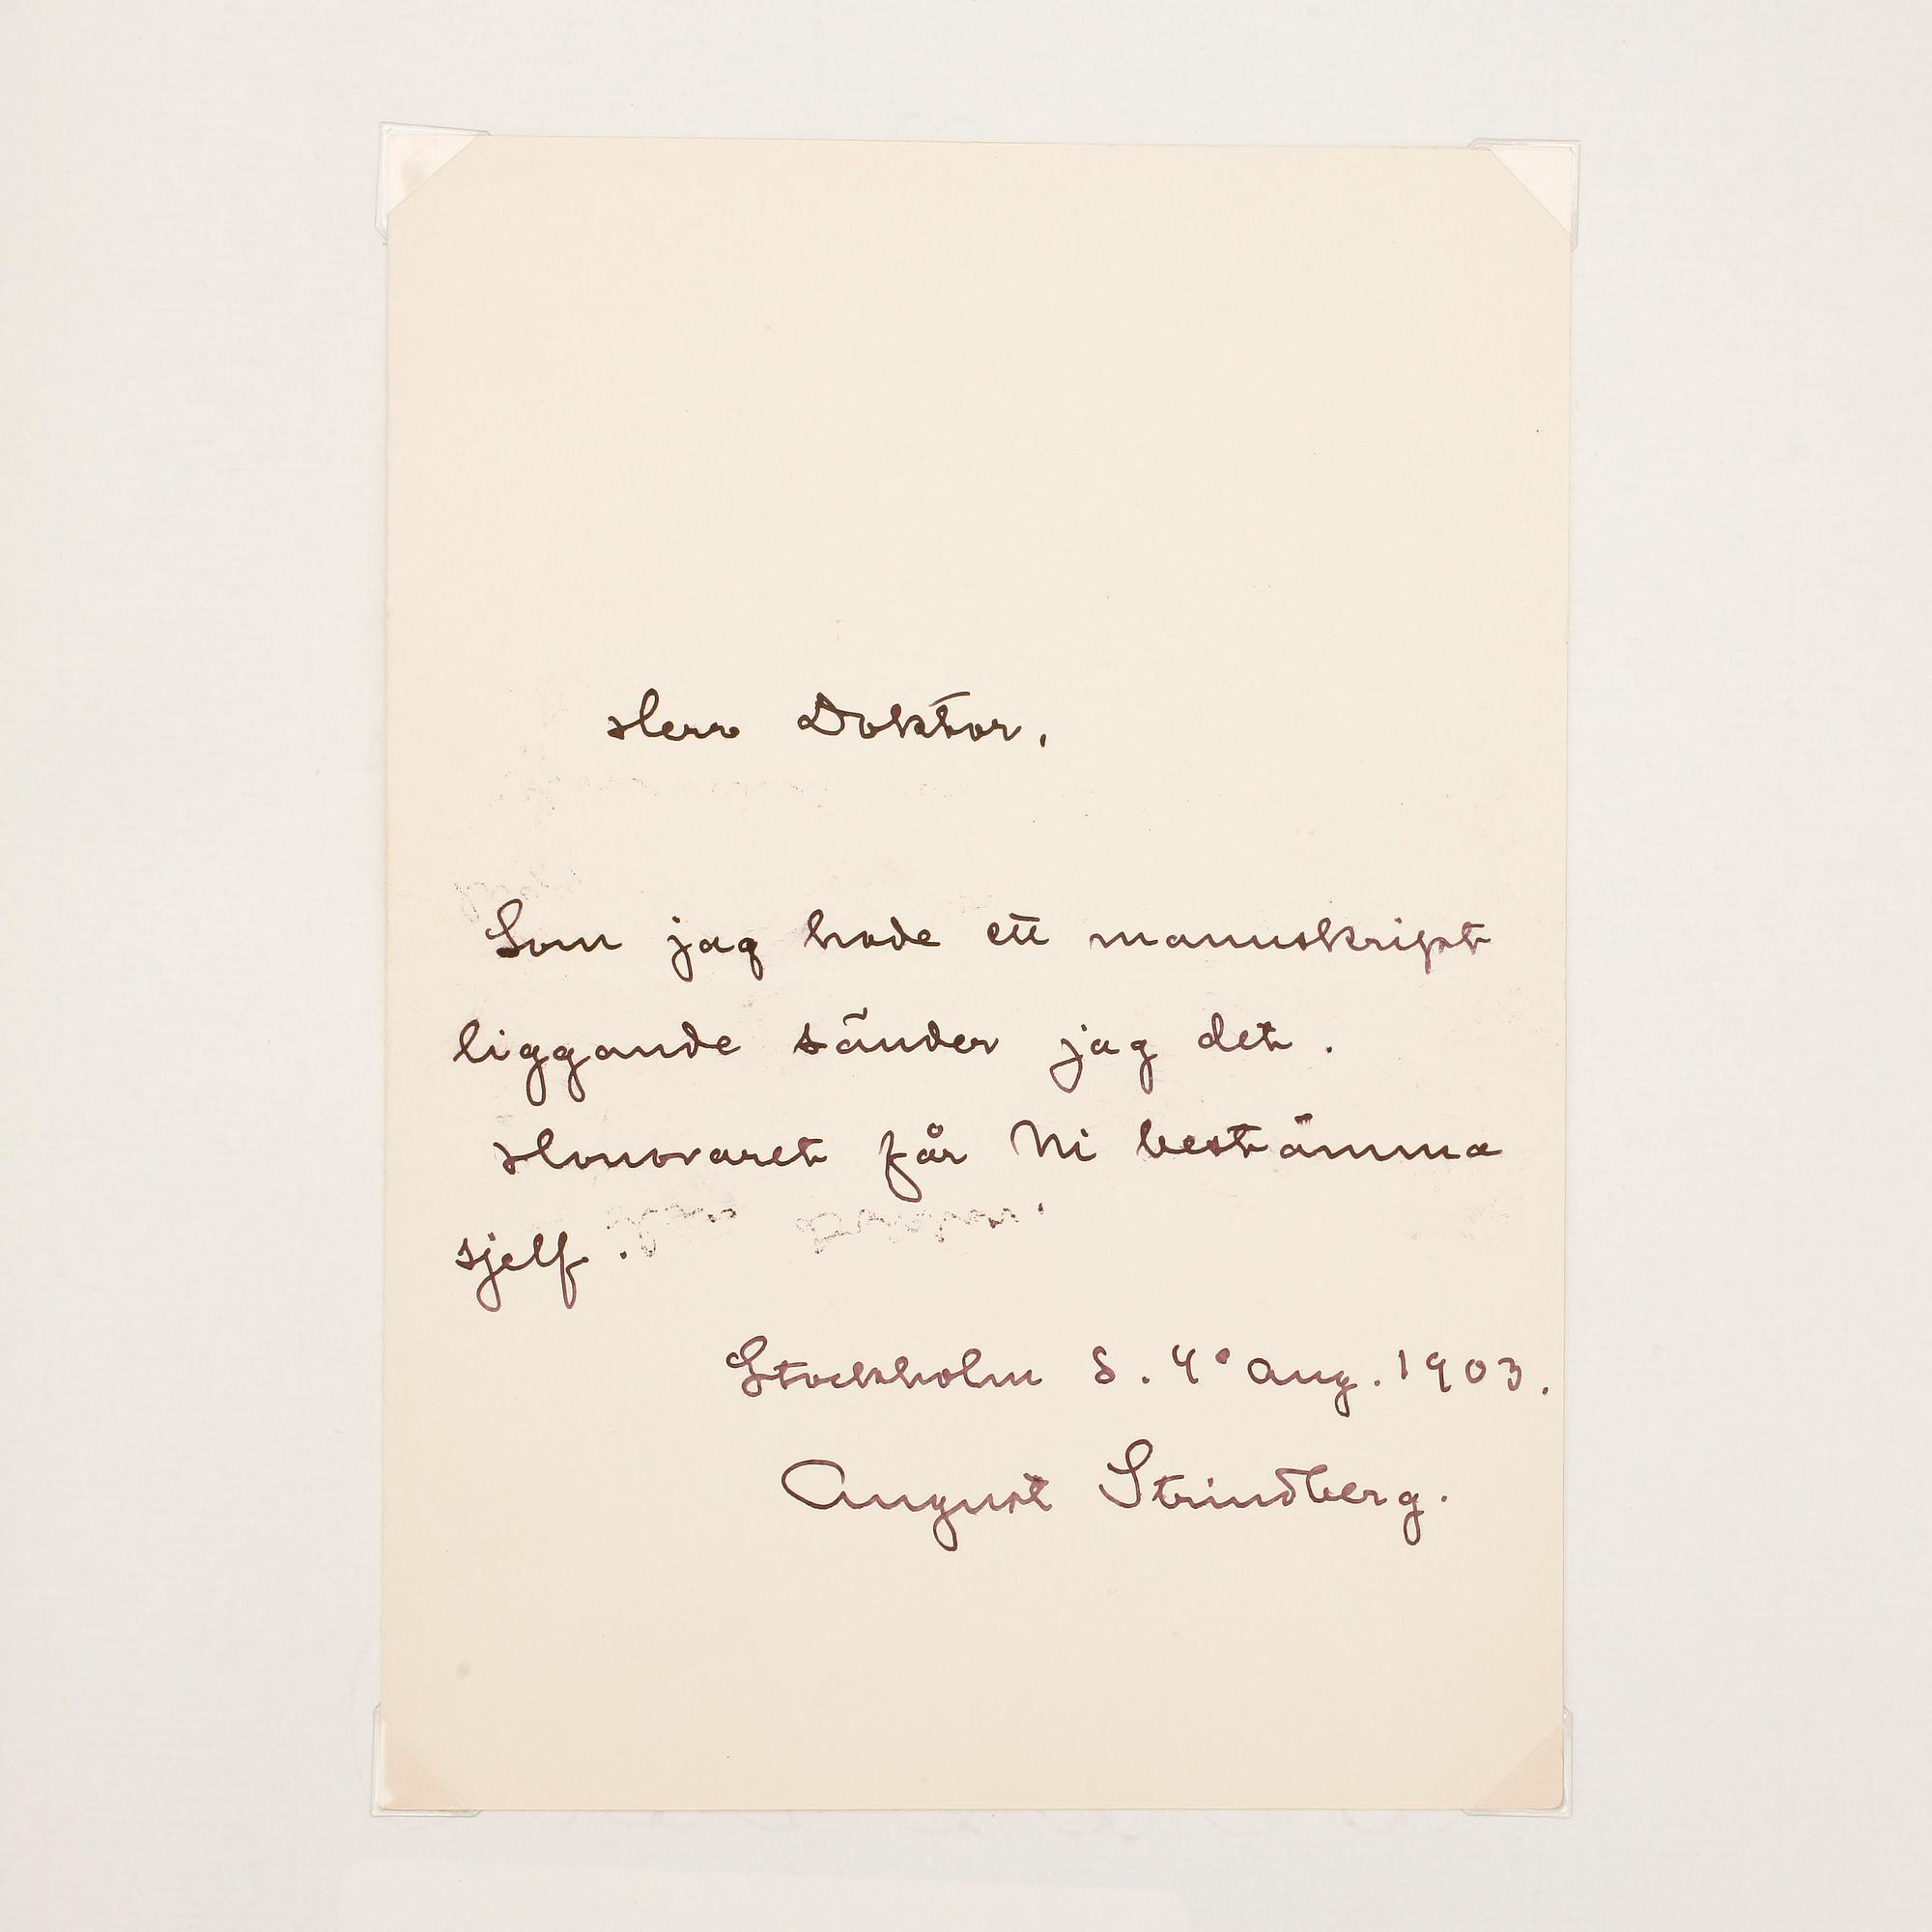 Herr Doktor,
Som jag hade ett manuskript
liggande sänder jag det.
Honoraret får Ni bestämma
sjelf.
Stockholm d. 4° Aug. 1903.
August Strindberg.